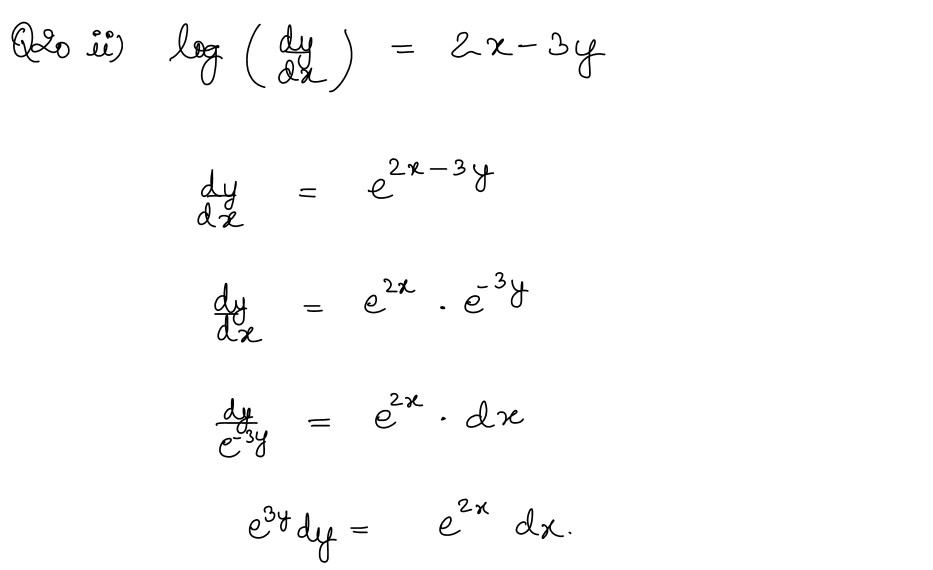 Q20 ii) log (dy/dx) = 2x - 3y
dy/dx = e^{2x-3y}
dy/dx = e^{2x} . e^{-3y}
dy/e^{-3y} = e^{2x} . dx
e^{3y} dy = e^{2x} dx.